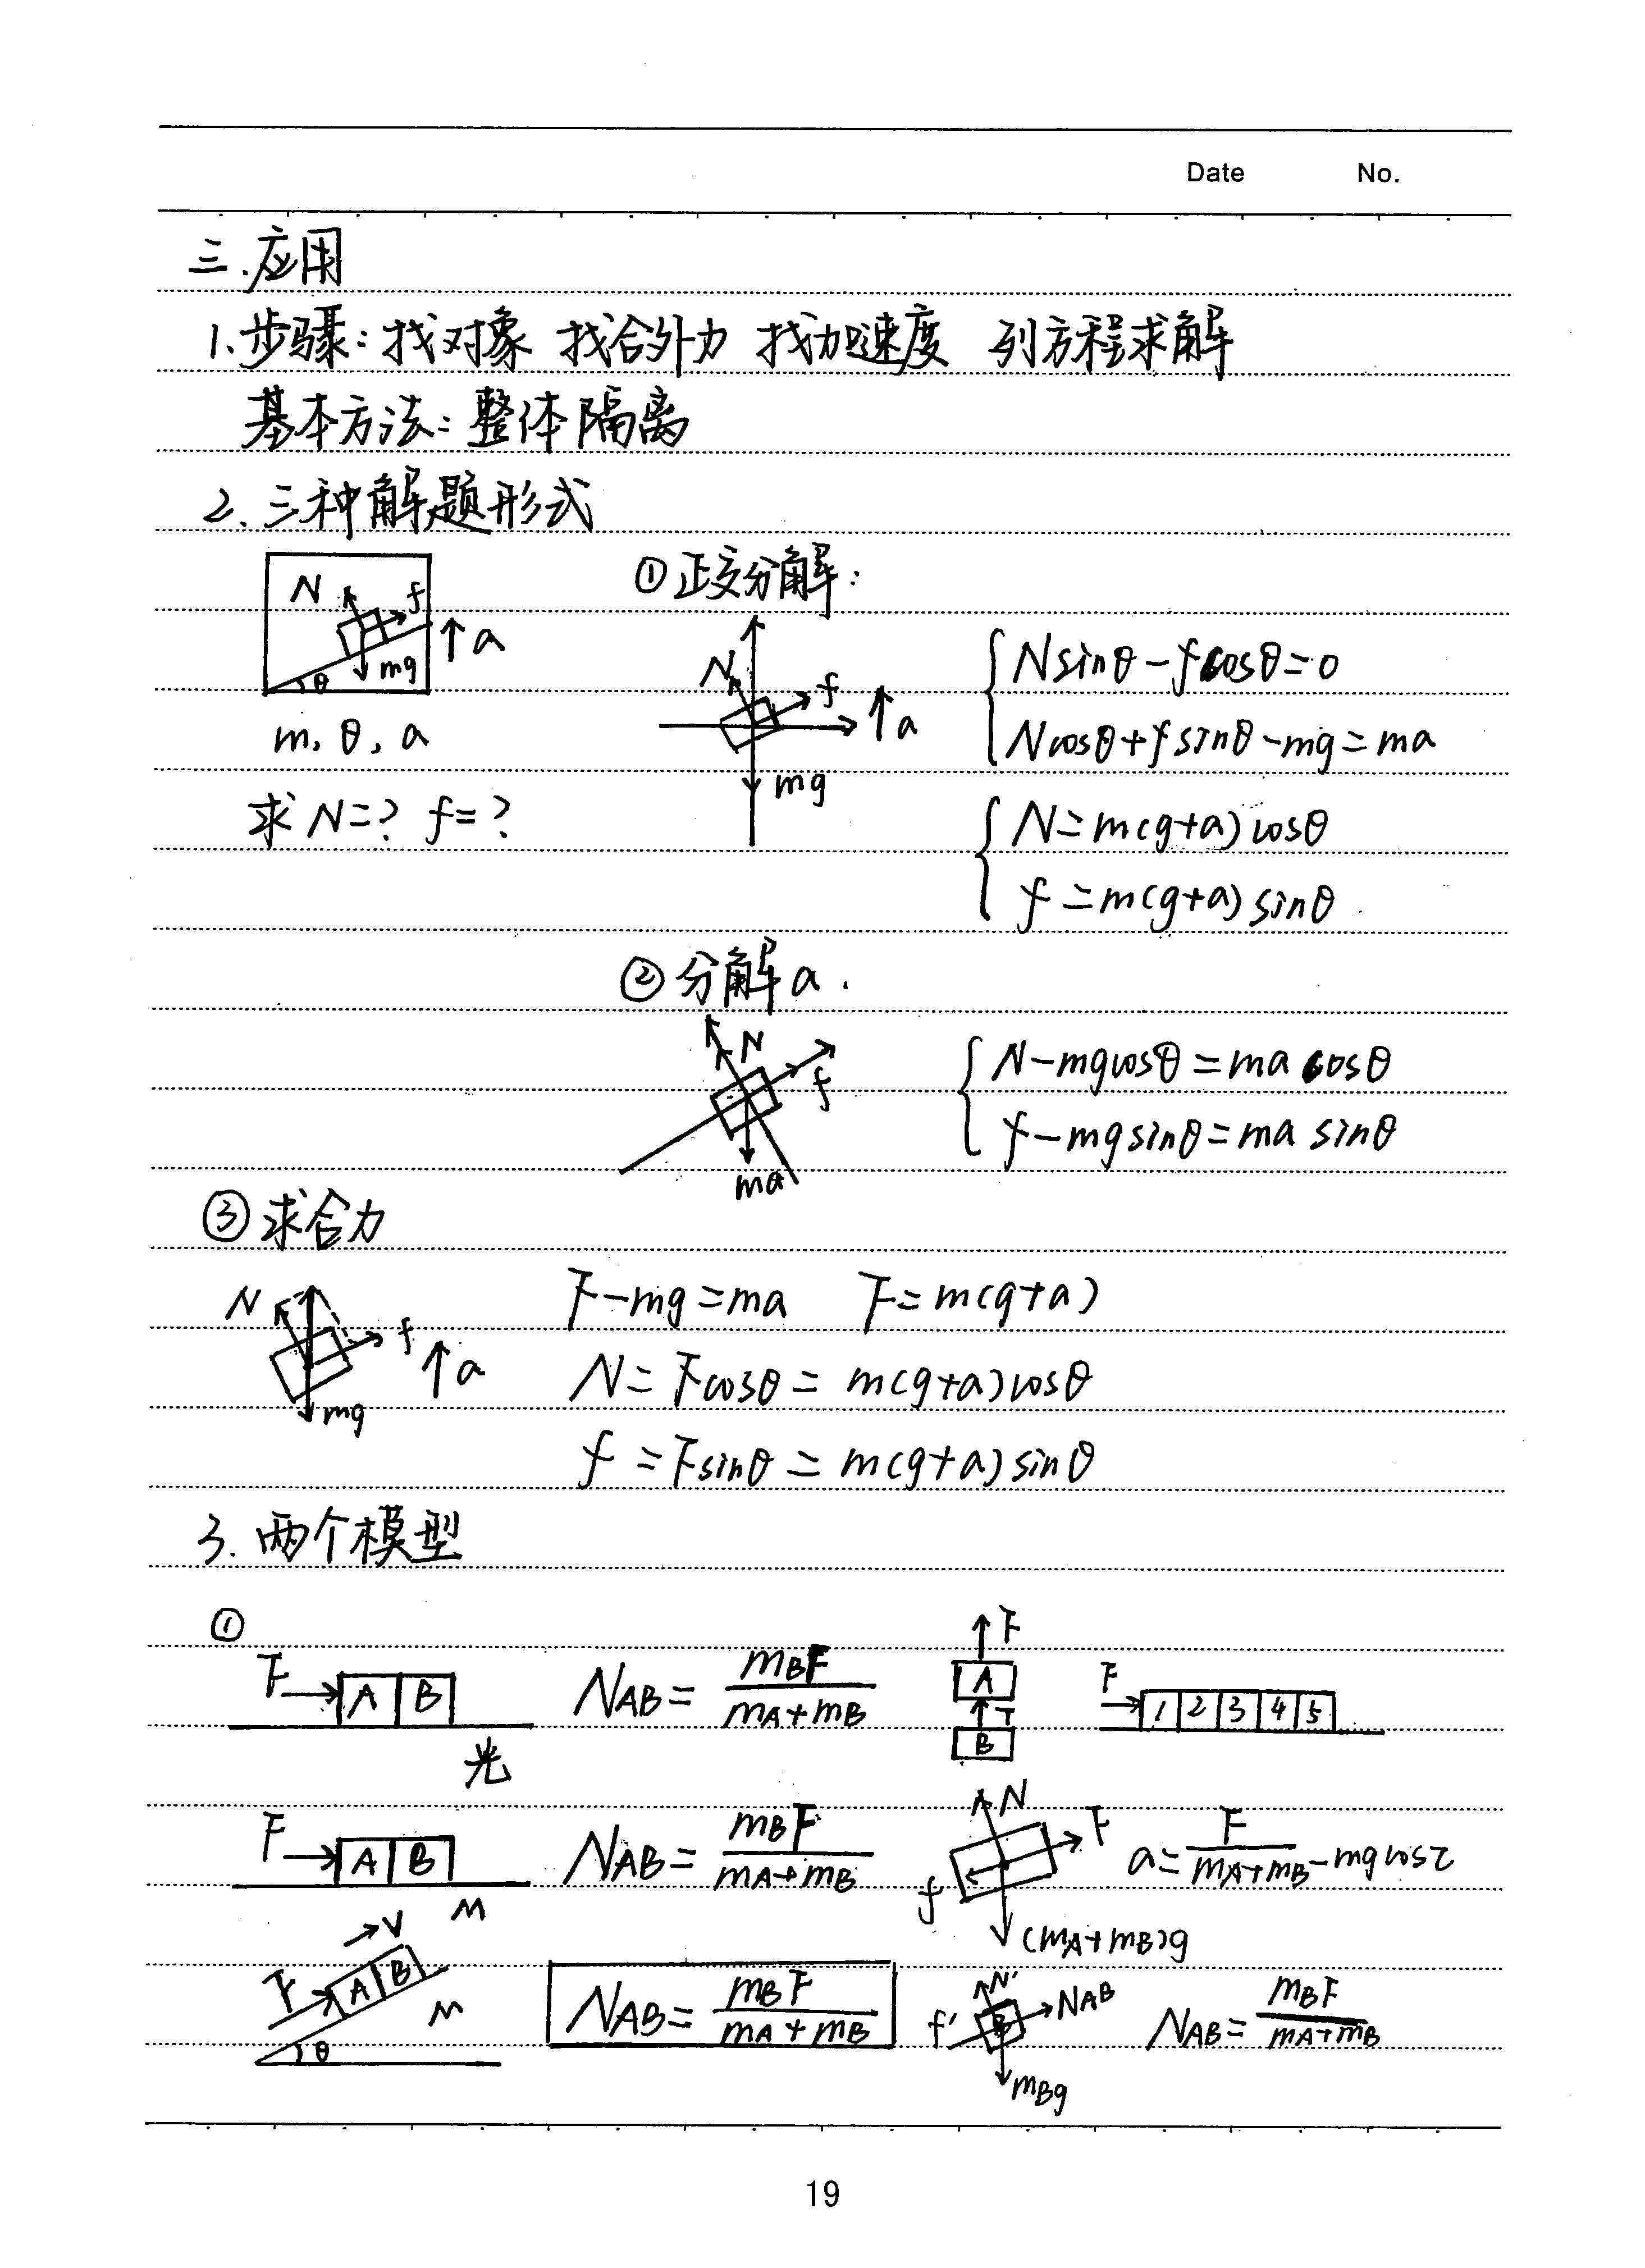 Date No.
三.应用
1.步骤:找对象 找合外力 找加速度 列方程求解
基本方法:整体隔离
2.三种解题形式
N f mg θ ↑a
m, θ, a
求N=? f=?
①正交分解:
N f mg ↑a
Nsinθ-fcosθ=0
Ncosθ+fsinθ-mg=ma
N=m(g+a)cosθ
f=m(g+a)sinθ
②分解a.
N f ma
N-mgcosθ=macosθ
f-mgsinθ=masinθ
③求合力
N f mg ↑a
F-mg=ma F=m(g+a)
N=Fcosθ=m(g+a)cosθ
f=Fsinθ=m(g+a)sinθ
3.两个模型
①
F A B
光
N_AB=m_BF/(m_A+m_B)
F A T B
F 1 2 3 4 5
F A B M
N_AB=m_BF/(m_A+m_B)
N F f (m_A+m_B)g
a=F/(m_A+m_B)-mgcosτ
F A B V M θ
N_AB=m_BF/(m_A+m_B)
N' f' B N_AB m_Bg
N_AB=m_BF/(m_A+m_B)
19